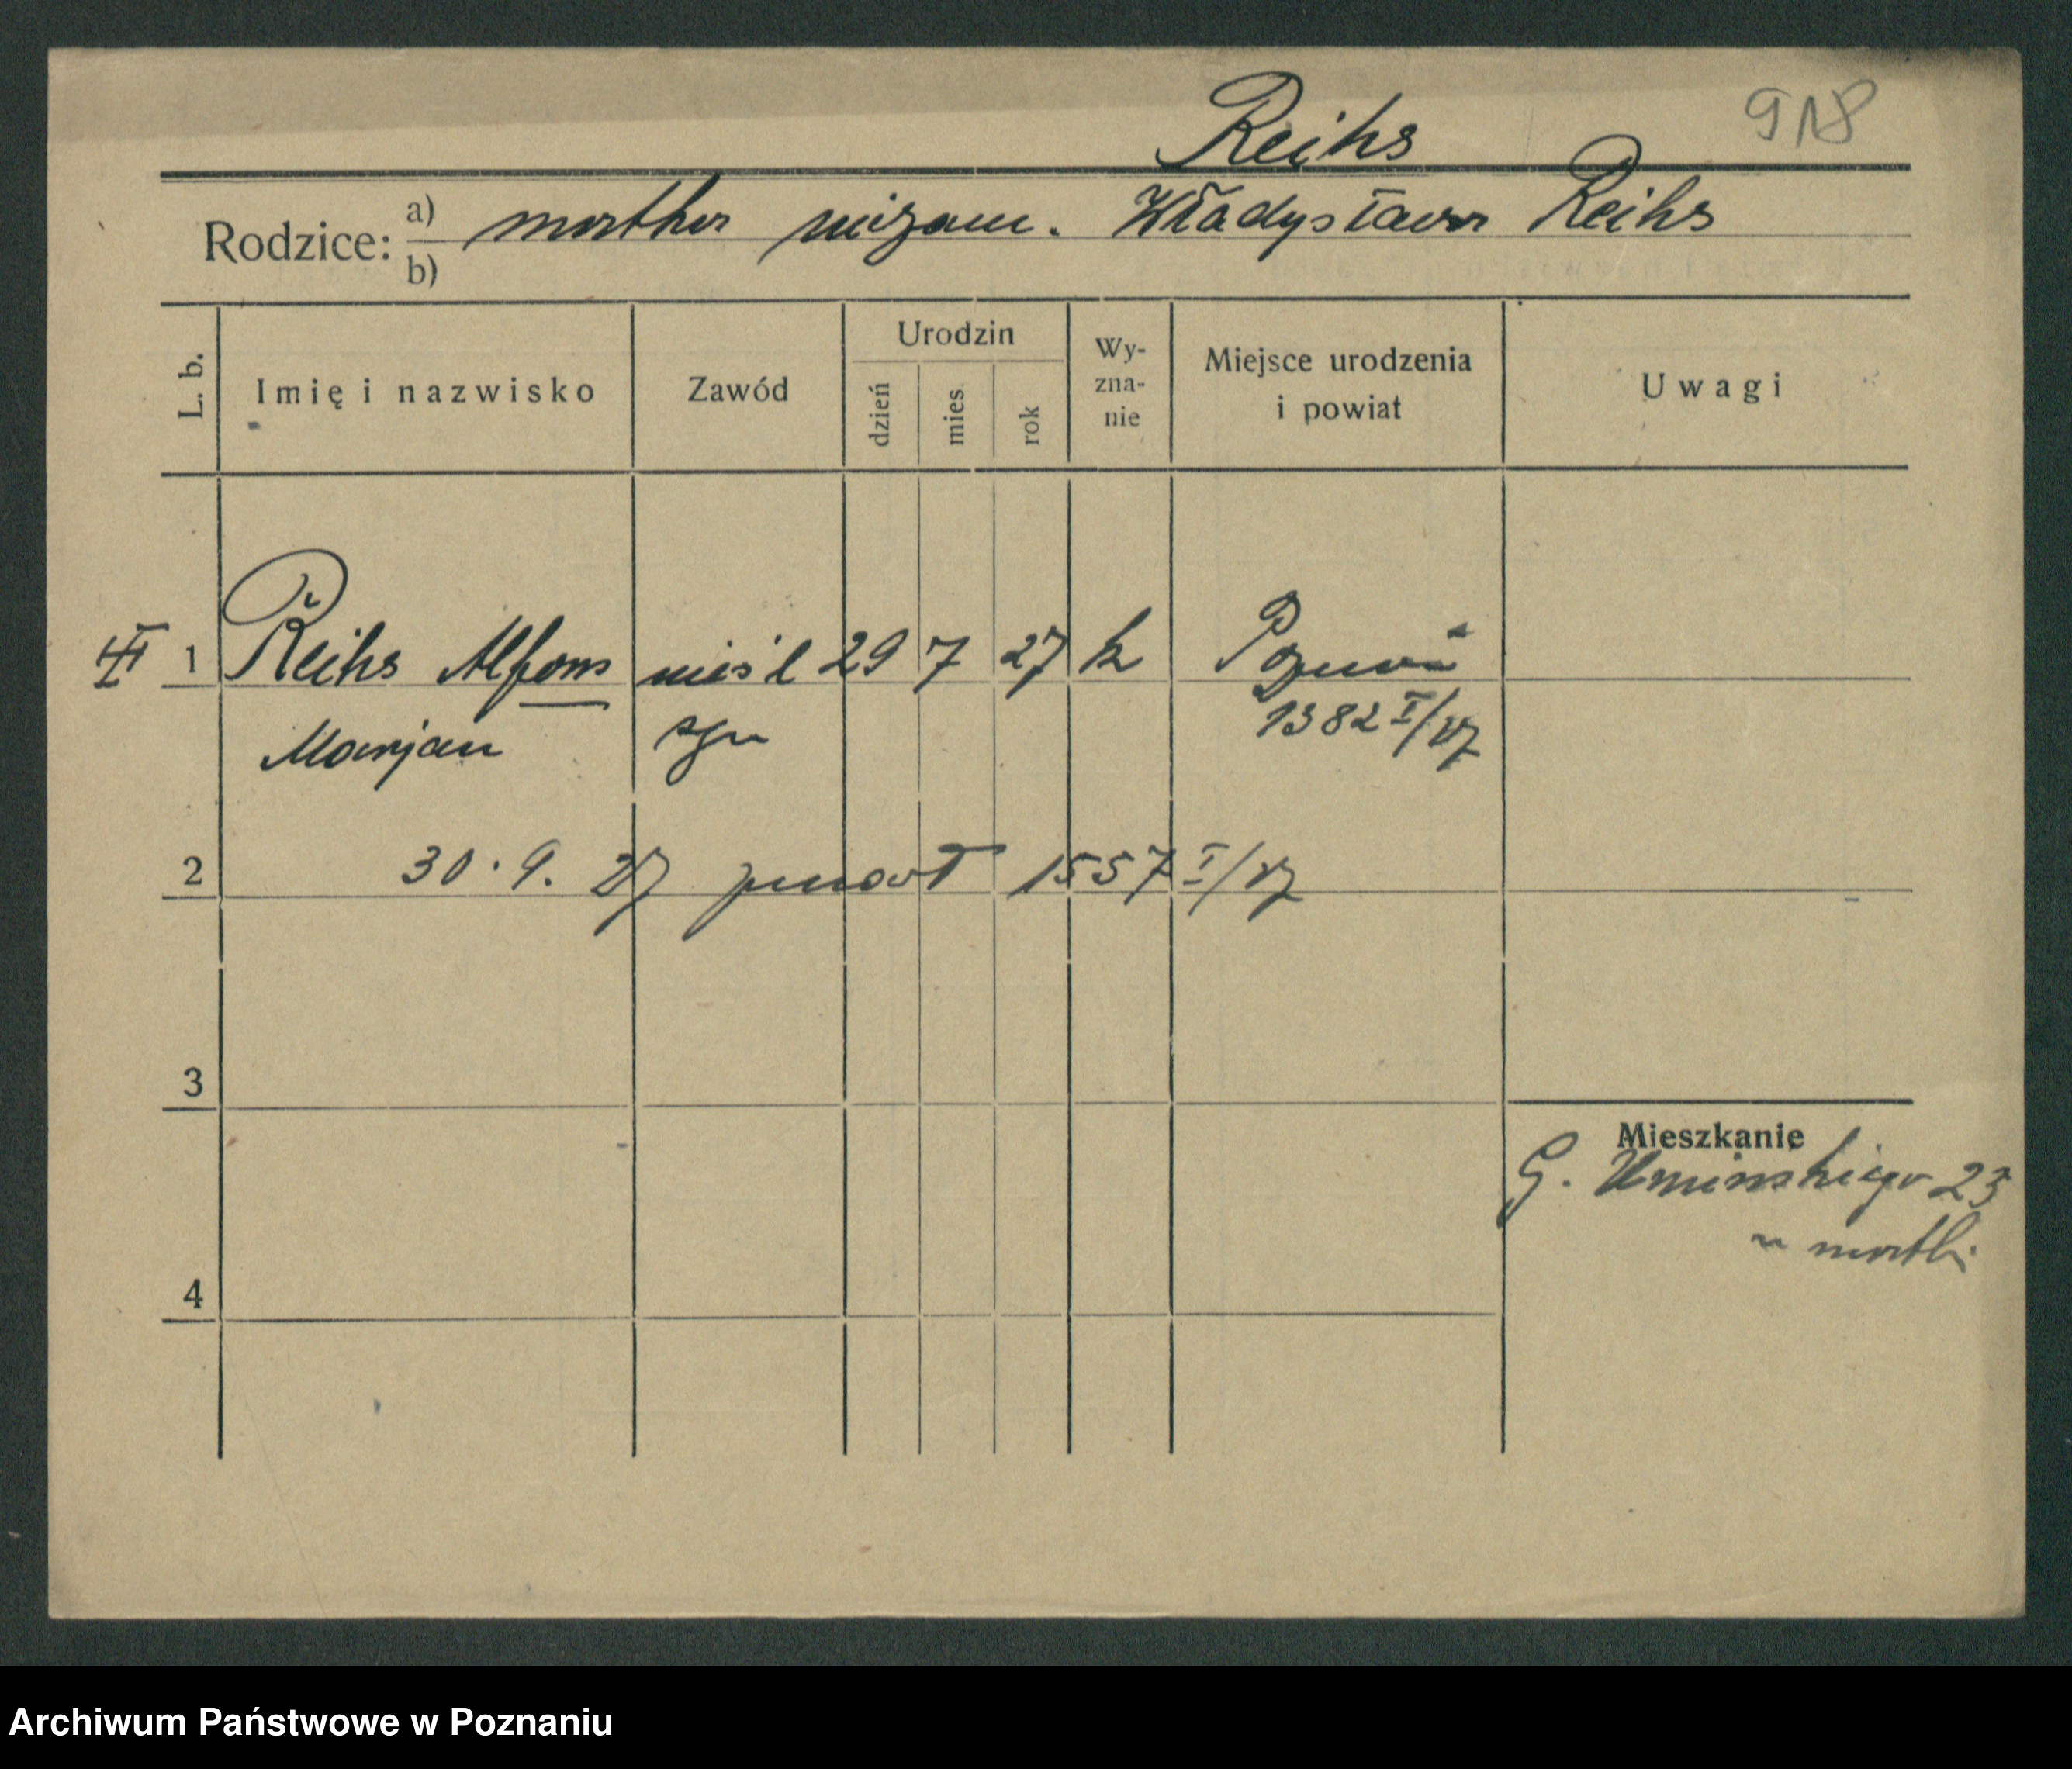 Reihs 918
Rodzice: a) matka niezam. Władysława Reihs
b)
L. b. Imię i nazwisko Zawód Urodzin dzień mies. rok Wy-zna-nie Miejsce urodzenia i powiat Uwagi
III 1 Reihs Alfons nieśl 29 7 27 k Poznań
Marjan syn 1382 I/27
2 30.9.27 zmarł 1557 I/27
3
Mieszkanie
G. Umińskiego 23
u matki
4
Archiwum Państwowe w Poznaniu